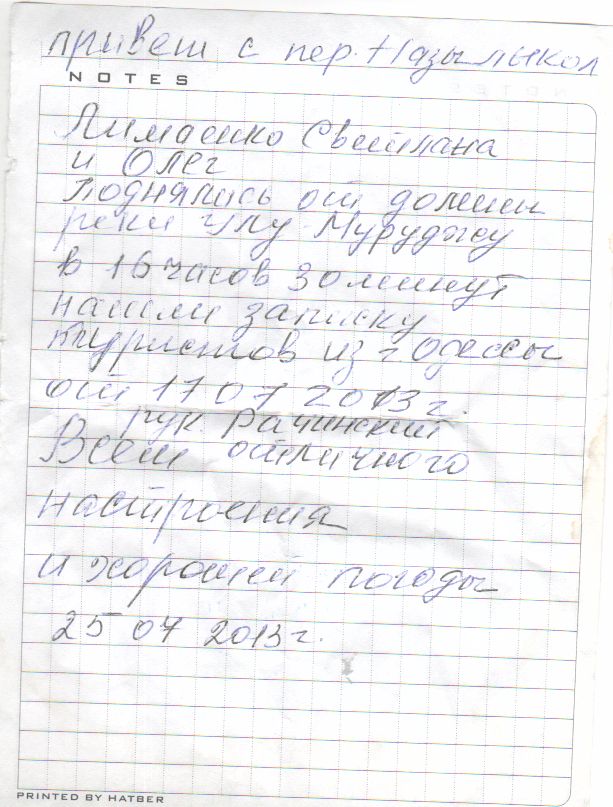 привет с пер. Назылыкол
NOTES
Лимаенко Светлана
и Олег
поднялись от долины
реки Улу-Муруджу
в 16 часов 30 минут
нашли записку
туристов из г. Одессы
от 17 07 2013 г.
рук. Рачинский
Всем отличного
настроения
и хорошей погоды
25 07 2013 г.
PRINTED BY HATBER